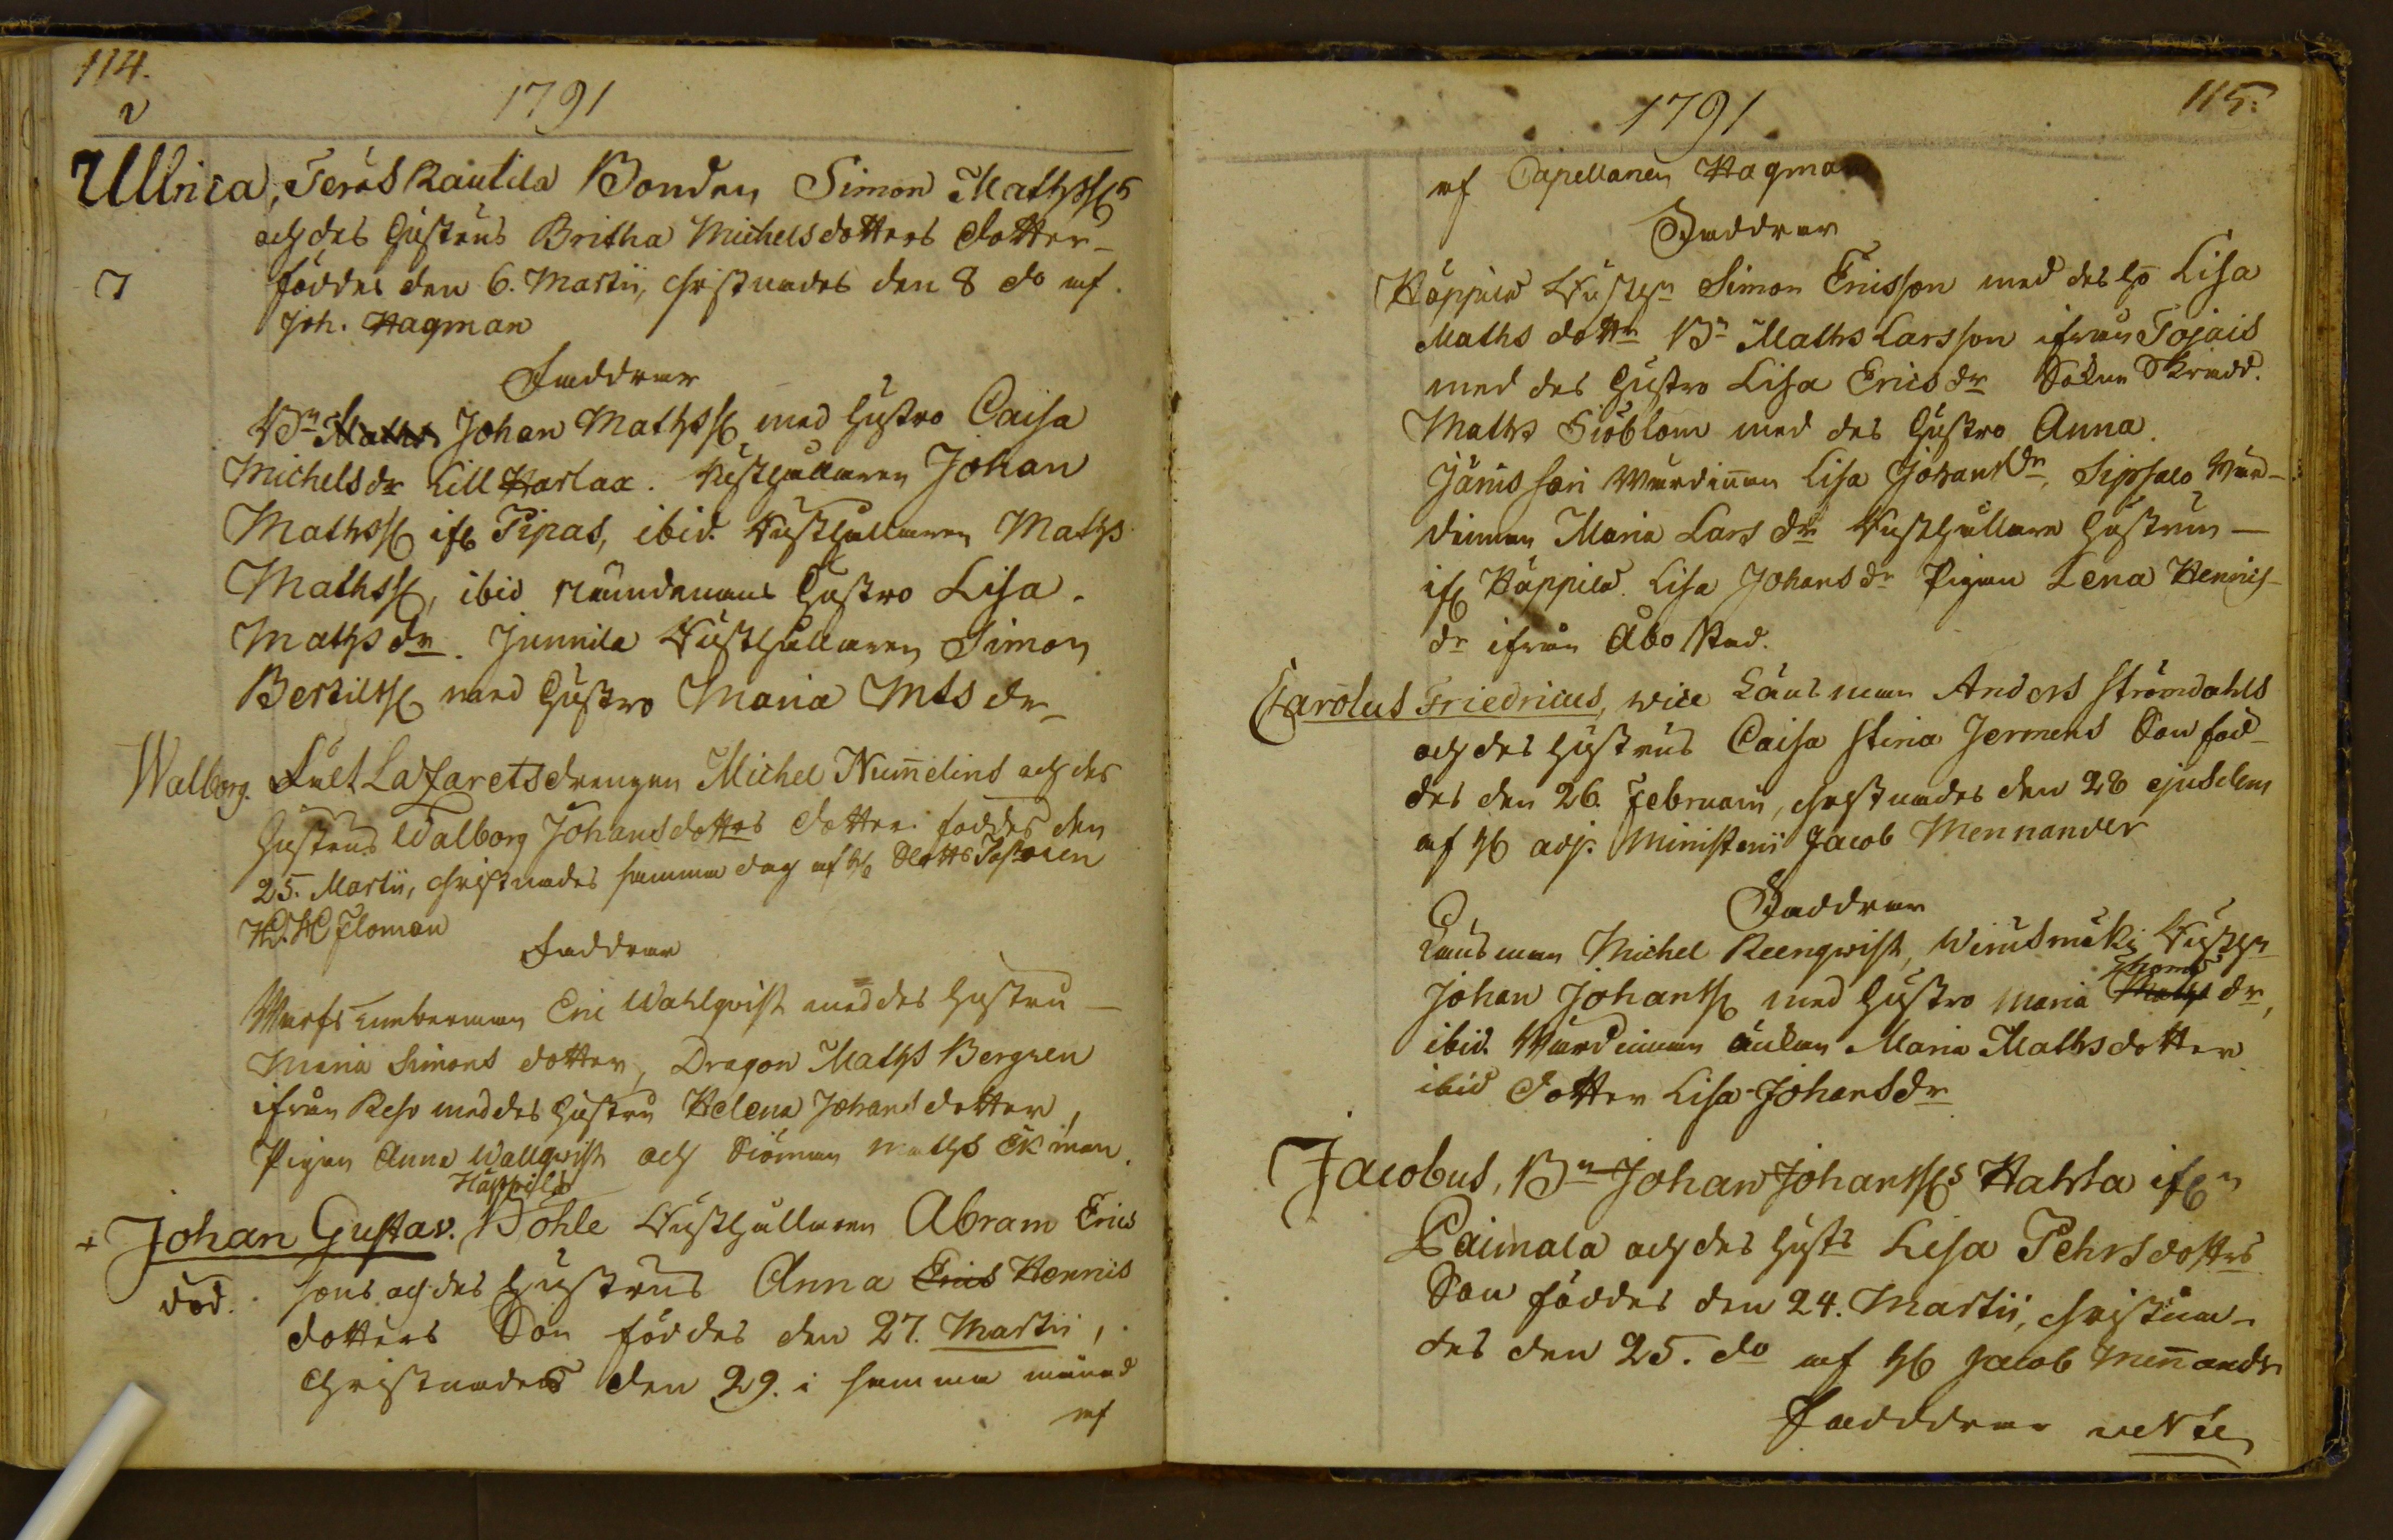 114.
1791
Ullrica, Teräs Rautila Bonden Simon Mathss:s
och des Hustrus Britha Michelsdotters dotter
föddes den 6. Martii, Christnades den 8 do af
Joh. Hagman
Faddrar
Bn Maths Johan Mathss: med Hustro Caisa
Michelsdr Lill Harlax. Rusthållaren Johan
Mathss: ifr Pipas, ibid. Rusthållaren Maths
Mathss:, ibid Nämdemans Hustro Lisa
Mathsdr. Junnila Rusthållaren Simon
Bertilss: med Hustro Maria Mtsdr
Walborg. Fält Lazarets drengen Michel Num̅elins och des
Hustrus Walborg Johansdotters dotter föddes den
25. Martii, Christnades samma dag af H: Slotts Pastoren
Floman
Faddrar
Warfs timberman Eric Wahlqvist med des Hustru
Maria Simons dotter, Dragon Maths Bergren
ifrån Reso med des Hustru Helena Johans dotter,
Pigan Anna Wallqvist och Siöman Maths Ekman.
Häppilä
+ Johan Gustav. Pohle Rusthållaren Abram Erics
död. sons och des Hustrus Anna Erics Hennis
dotters Son föddes den 27. Martii,
Christnades den 29. i samma månad
af
115.
1791
af Capellanen Hagman
Faddrar
Häppilä Rusth:n Simon Ericsson med des H:o Lisa
Maths dottr Bn Maths Larsson ifrån Tojais
med des Hustro Lisa Ericsdr Sokne Skrädd.
Maths Siöblom med des Hustro Anna
Jänissari Wärdinnan Lisa Johansdr, Sipsalo Wär-
dinnan Maria Larsdr Rusthållare Hustrun
ifr Häppilä Lisa Johansdr Pigan Lena Hennis-
dr ifrån Åbo Stad.
Carolus Friedricus, wice Länsman Anders Strömdahls
och des Hustrus Caisa Stina Jermens Son föd-
des den 26. Februarii, Christnades den 28 ejusdem
af H: adj. Ministerii Jacob Mennander
Faddrar
Länsman Michel Reenqvist, Wirusmäki Rusth:n
Johan Johanss: med Hustro Maria Maths Thoms dr,
ibid. Wärdinnan änkan Maria Mathsdotter
ibid dotter Lisa Johansdr
Jacobus, Bn Johan Johanss:s Hahta ifrn
Laimala och des Husts Lisa Pehrsdotters
Son föddes den 24. Martii, Christna-
des den 25. do af H: Jacob Men̅ander
Faddrar verte